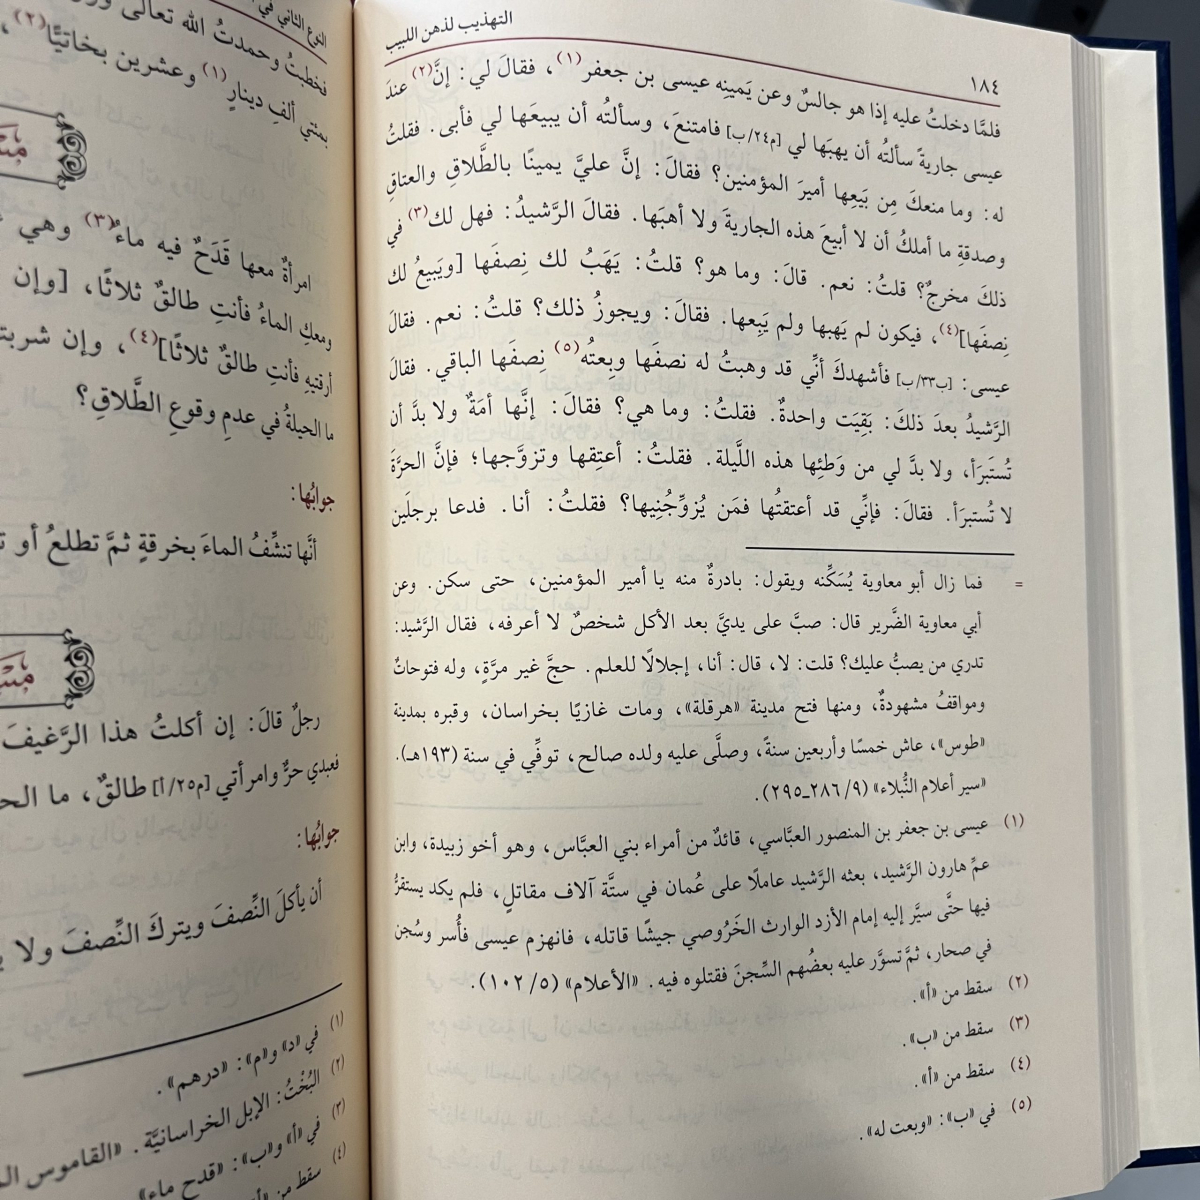 التهذيب لذهن اللبيب
١٨٤
فلمَّا دخلتُ عليه إذا هو جالسٌ وعن يَمينِه عيسى بن جعفر(١)، فقالَ لي: إنَّ(٢) عندَ
عيسى جاريةً سألتُه أن يهبَها لي [م٢٤/ب] فامتنعَ، وسألتُه أن يبيعَها لي فأبى. فقلتُ
له: وما منعكَ مِن بَيعِها أميرَ المؤمنين؟ فقالَ: إنَّ عليَّ يمينًا بالطَّلاقِ والعتاقِ
وصدقةِ ما أملكُ أن لا أبيعَ هذه الجاريةَ ولا أهبَها. فقالَ الرَّشيدُ: فهل لك(٣) في
ذلكَ مخرجٌ؟ قلتُ: نعم. قالَ: وما هو؟ قلتُ: يَهَبُ لك نِصفَها [ويَبيعُ لك
نِصفَها](٤)، فيكون لم يَهبها ولم يَبِعها. فقالَ: ويجوزُ ذلك؟ قلتُ: نعم. فقالَ
عيسى: [ب٣٣/ب] فأشهدكَ أنِّي قد وهبتُ له نصفَها وبعتُه(٥) نِصفَها الباقي. فقالَ
الرَّشيدُ بعدَ ذلكَ: بَقِيَت واحدةٌ. فقلتُ: وما هي؟ فقالَ: إنَّها أمَةٌ ولا بدَّ أن
تُستَبرَأ، ولا بدَّ لي من وَطئِها هذه اللَّيلة. فقلتُ: أعتِقها وتزوَّجها؛ فإنَّ الحرَّةَ
لا تُستبرَأ. فقالَ: فإنِّي قد أعتقتُها فمَن يُزوِّجُنِيها؟ فقلتُ: أنا. فدعا برجلَين
= فما زال أبو معاوية يُسَكِّنه ويقول: بادرةٌ منه يا أمير المؤمنين، حتى سكن. وعن
أبي معاوية الضَّرير قال: صبَّ على يديَّ بعد الأكل شخصٌ لا أعرفه، فقال الرَّشيد:
تدري من يصبُّ عليك؟ قلت: لا، قال: أنا، إجلالًا للعلم. حجَّ غير مرَّةٍ، وله فتوحاتٌ
ومواقفُ مشهودةٌ، ومنها فتح مدينة «هرقلة»، ومات غازيًا بخراسان، وقبره بمدينة
«طوس»، عاش خمسًا وأربعين سنةً، وصلَّى عليه ولده صالح، توفِّي في سنة (١٩٣هـ).
«سير أعلام النُّبلاء» (٩/ ٢٨٦ـ٢٩٥).
(١) عيسى بن جعفر بن المنصور العبَّاسي، قائدٌ من أمراء بني العبَّاس، وهو أخو زبيدة، وابن
عمِّ هارون الرَّشيد، بعثه الرَّشيد عاملًا على عُمان في ستَّة آلاف مقاتلٍ، فلم يكد يستقرُّ
فيها حتَّى سيَّر إليه إمام الأزد الوارث الخَرُوصي جيشًا قاتله، فانهزم عيسى فأُسر وسُجن
في صحار، ثمَّ تسوَّر عليه بعضُهم السِّجنَ فقتلوه فيه. «الأعلام» (٥/ ١٠٢).
(٢) سقط من «أ».
(٣) سقط من «ب».
(٤) سقط من «أ».
(٥) في «ب»: «وبعت له».
النوع الثاني في
فخطبتُ وحمدتُ الله تعالى
بمئتي ألفِ دينارٍ(١) وعشرين بخاتيًّا(٢)،
امرأةٌ معها قَدَحٌ فيه ماءٌ(٣) وهي
ومعكِ الماءُ فأنتِ طالقٌ ثلاثًا، [وإن
أرقتِيهِ فأنتِ طالقٌ ثلاثًا](٤)، وإن شربتِ
ما الحيلةُ في عدمِ وقوعِ الطَّلاقِ؟
جوابُها:
أنَّها تنشِّفُ الماءَ بخرقةٍ ثمَّ تطلعُ أو
رجلٌ قالَ: إن أكلتُ هذا الرَّغيفَ
فعبدي حرٌّ وامرأتي [م٢٥/أ] طالقٌ، ما
جوابُها:
أن يأكلَ النِّصفَ ويتركَ النِّصفَ ولا
(١) في «د» و«م»: «درهم».
(٢) البُخْتُ: الإبل الخراسانيَّة. «القاموس
(٣) في «أ» و«ب»: «قدح ماء».
(٤) سقط من